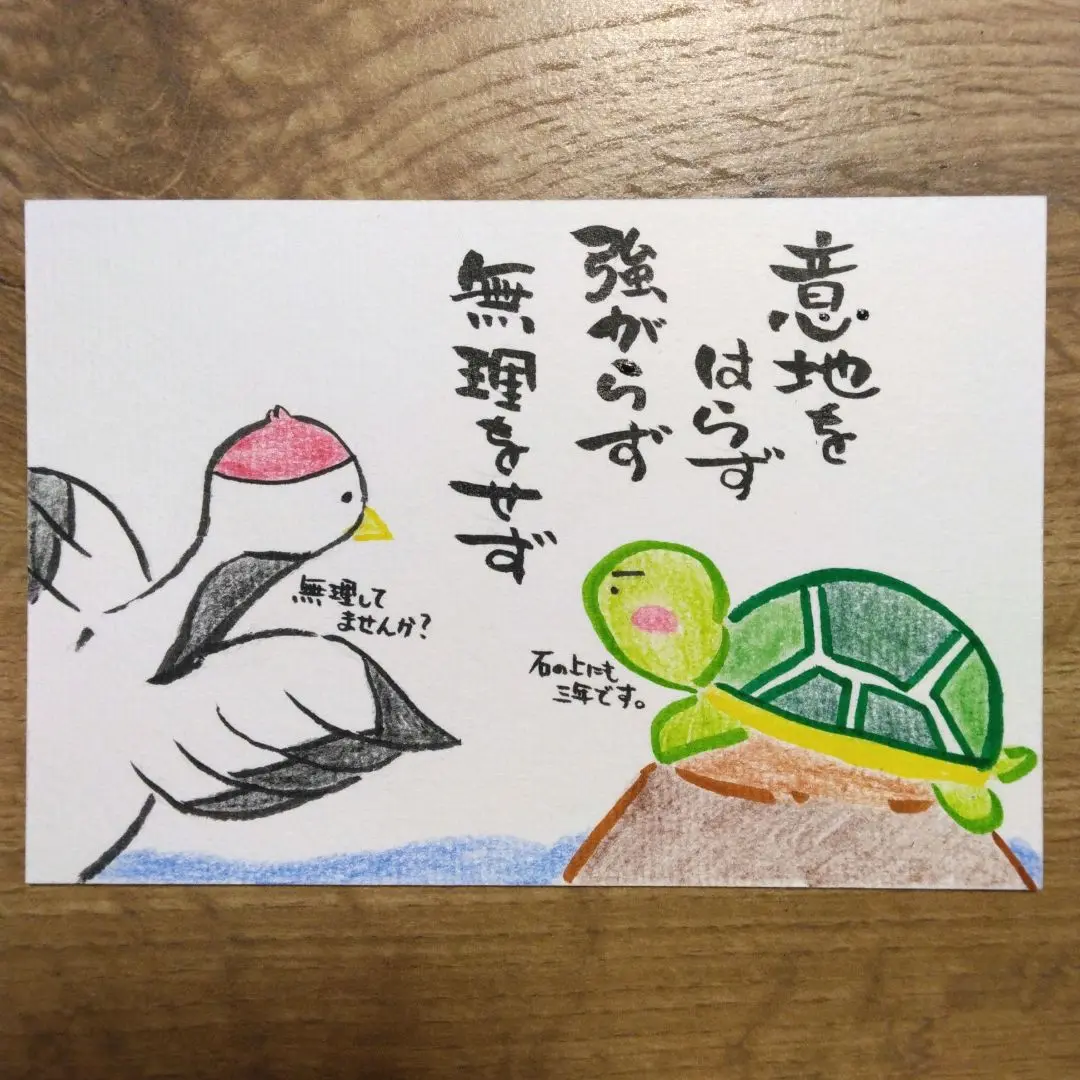 意地を
はらず
強がらず
無理をせず
無理して
ませんか?
石の上にも
三年です。